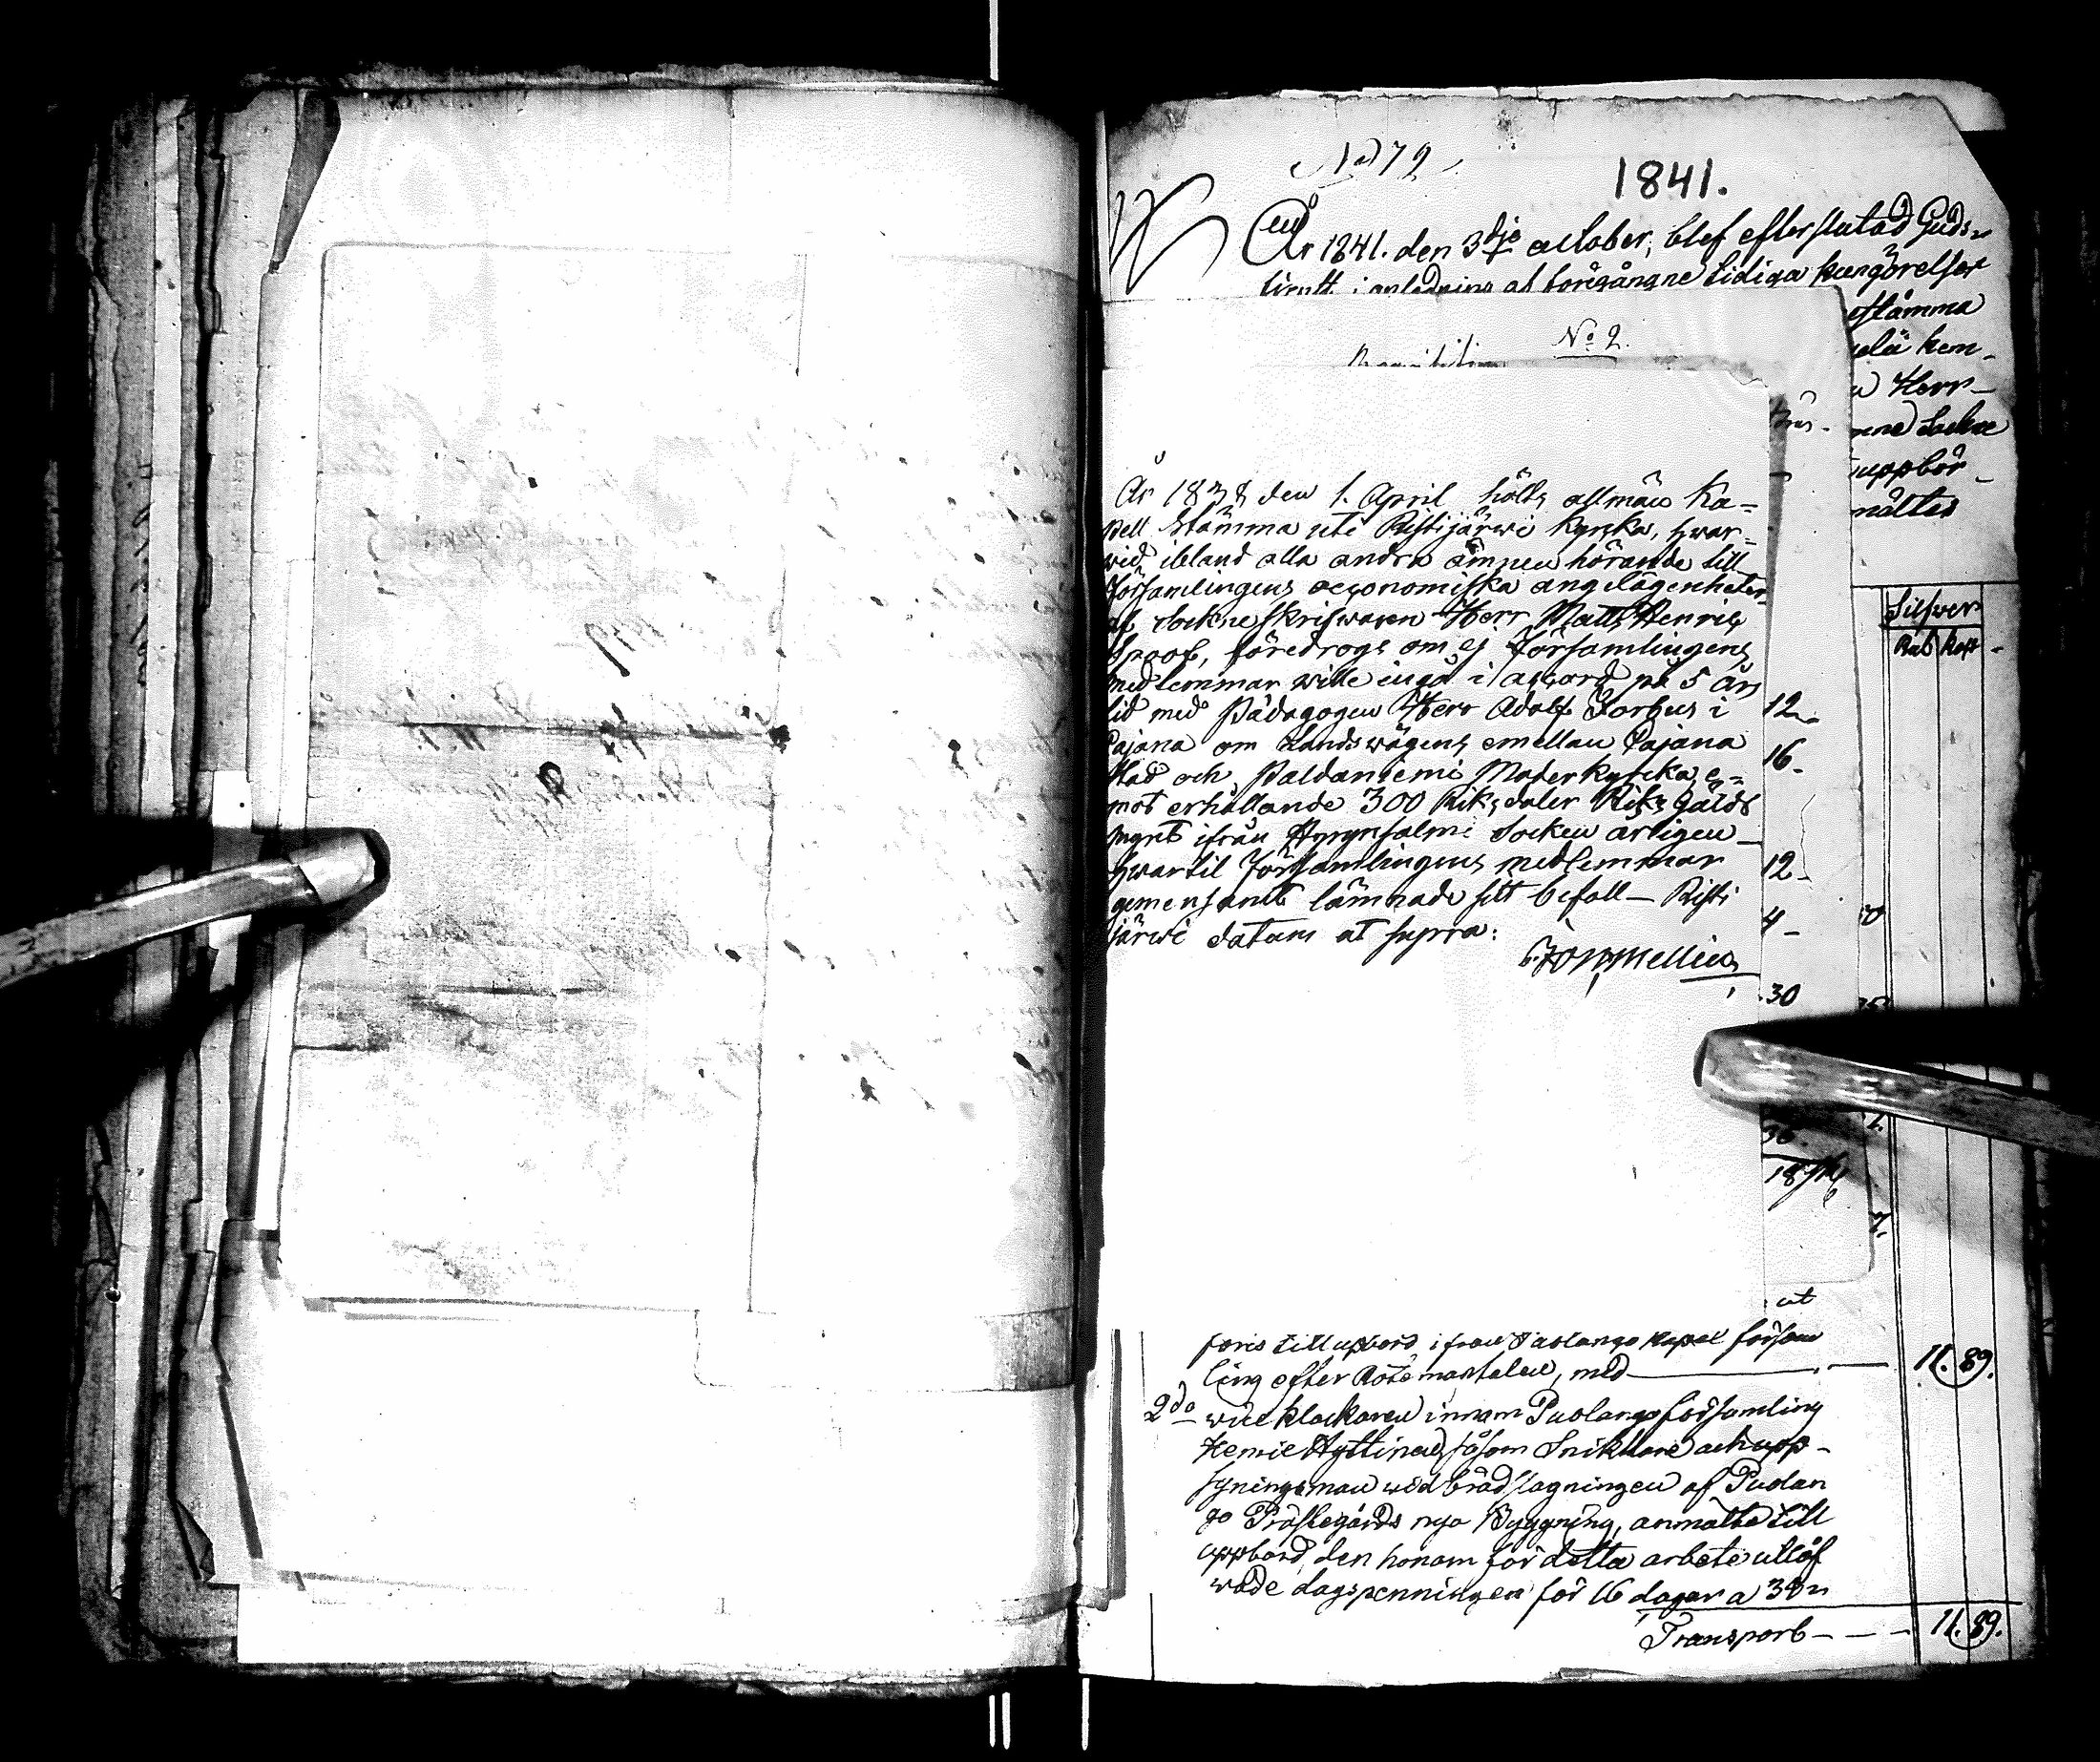 No 72
1841.
År 1841. den 3dje october, blef efterslutad Guds-
tienst i anledning af föregångne tidiga kungörelser
No 2.
estämma
elä hem-
Herr-
Sockne
uppbör-
måttes
Silfver
Rub Kop
År 1838 den 1. April hölts allmän Ka=
pell Stämma uti Ristijärwi Kyrka, hwar-
wid, ibland alla andra ämnen hörande till
Församlingens oeconomiska angelägenheter
af Sockneskrifwaren Herr Matts Henric
föredrogs om ej Församlingens
medlemmar wille ingå i accord på 5 års
tid med Pädagogen Herr Adolf Forbus i
Cajana om Landswägens emellan Cajana
stad och Paldaniemi Moderkyrka e=
mot erhållande 300 Riksdaler Riks Gälds
mynt ifrån Hyrynsalmi Socken årligen
hwartil Församlingens medlemmar
gemensamt lämnade sitt bifall — Risti
järwi datum ut supra:
12
16
12
4
30
ut
till upbörd ifrån Puolango Kapel försam
ling efter Rotemantalen, med 11. 89.
2do wice klockaren innom Puolango församling
Hyttinen, såsom Snickare och upp-
syningsman wid brädslagningen af Puolan
go Prästegårds nya Byggning, anmälte till
uppbörd, den honom för detta arbete utlof
wade dagspenningen för 16 dagar a
Transport 11. 89.